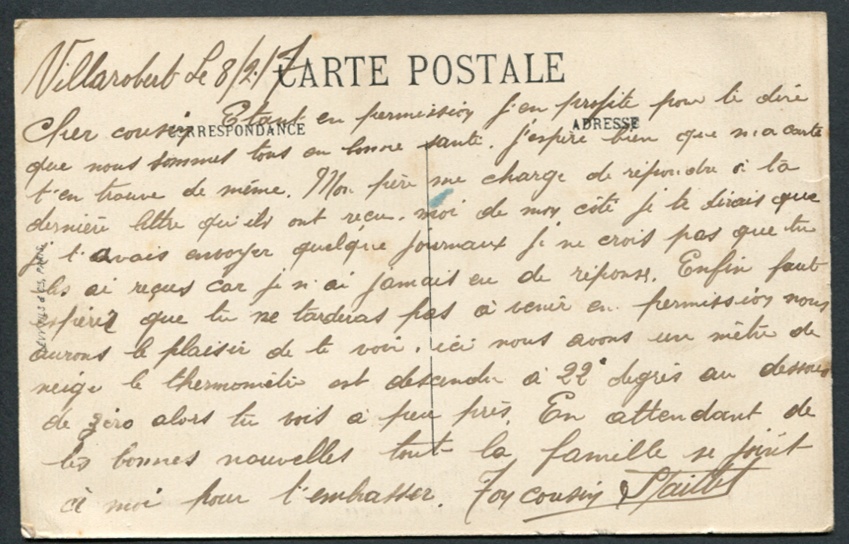 Villarobert Le 8/2/17
CARTE POSTALE
Cher cousin Etant en permission j'en profite pour te dire
CORRESPONDANCE
ADRESSE
que nous sommes tous en bonne santé. J'espère bien que ma carte
t'en trouve de même. Mon père me charge de répondre à ta
dernière lettre qu'ils ont reçu. moi de mon côté je te dirais que
je t'avais envoyer quelque journaux je ne crois pas que tu
les ai reçus car je n'ai jamais eu de réponse. Enfin faut
espérer que tu ne tarderas pas à venir en permission nous
aurons le plaisir de te voir. ici nous avons un mètre de
neige le thermomètre est descendu à 22° degrés au dessous
de zéro alors tu vois à peu près. En attendant de
tes bonnes nouvelles toute la famille se joint
à moi pour t'embrasser. Ton cousin